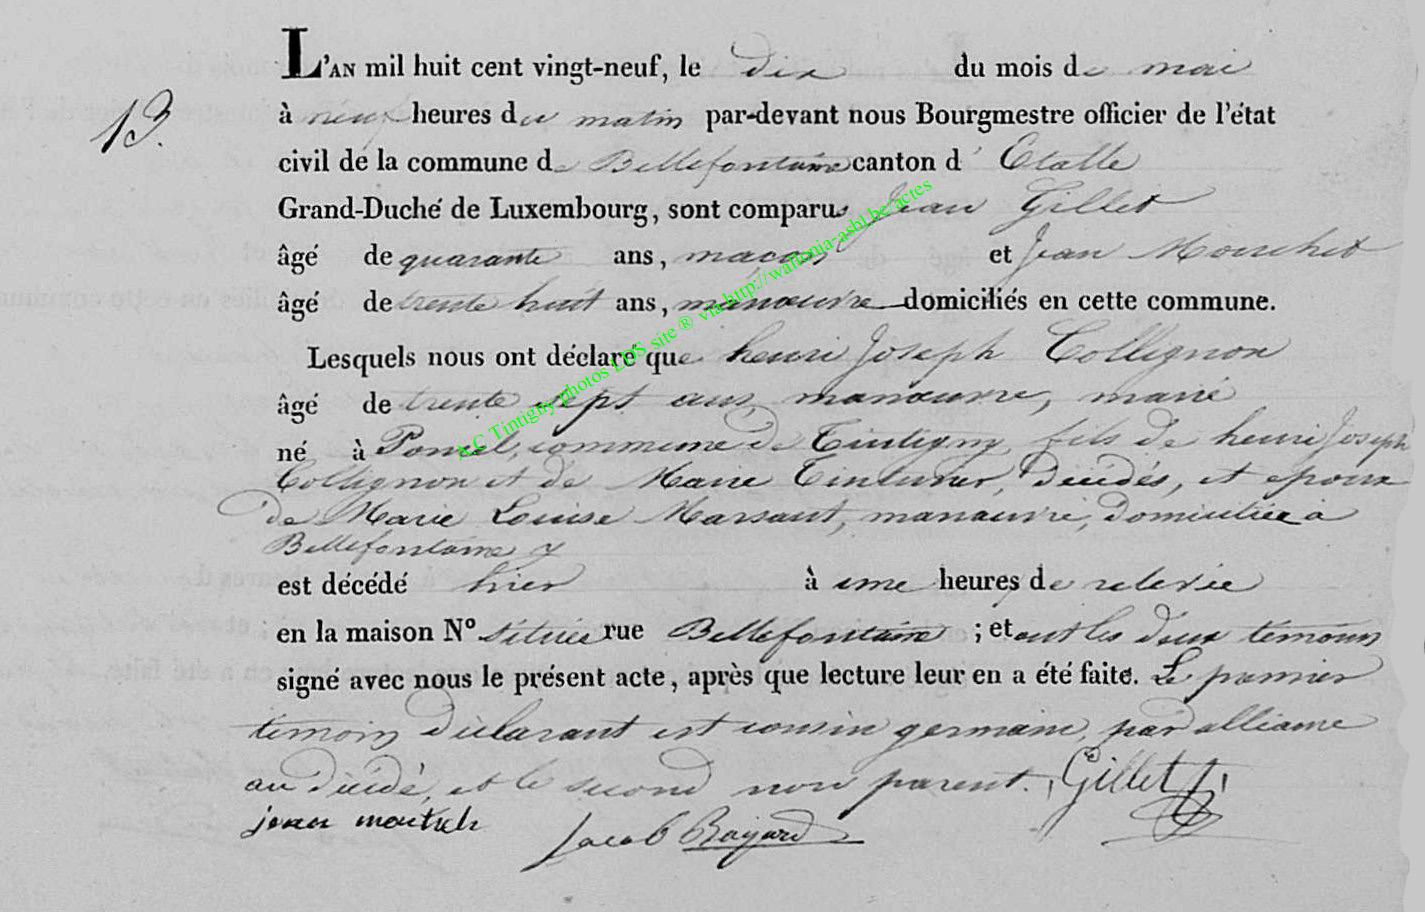 L'AN mil huit cent vingt-neuf, le dix du mois de mai
13.
à neuf heures du matin par-devant nous Bourgmestre officier de l'état
civil de la commune de Bellefontaine canton d'Etalle
Grand-Duché de Luxembourg, sont comparus Jean Gillet
âgé de quarante ans, maçon et Jean Mouchet
âgé de trente huit ans, manœuvre domiciliés en cette commune.
Lesquels nous ont déclaré que henri Joseph Collignon
âgé de trente sept ans, manœuvre, marié
né à Poncel, commune de Tintigny, fils de henri Joseph
Collignon et de Marie Tinturier, décédés, et epoux
de Marie Louise Marsaut, manœuvre, domiciliée à
Bellefontaine
est décédé hier à une heures de relevée
en la maison N° située rue Bellefontaine ; et ont les deux témoins
signé avec nous le présent acte, après que lecture leur en a été faite. Le premier
témoin déclarant est cousin germain, par alliance
au décédé, et le second non parent. Gillet J
jean
Jacob Bayard
A.C Tintigny photos LDS site ® via http://wallonia-asbl.be/actes